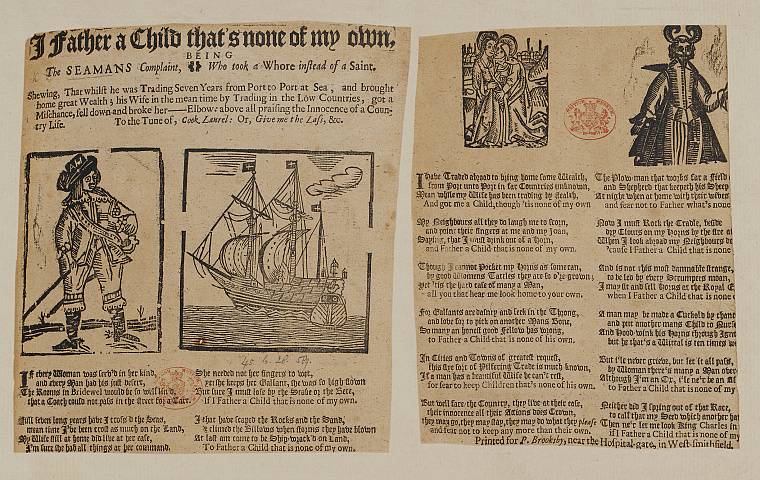 I Father a Child that's none of my own,
BEING
The SEAMANS Complaint, Who took a Whore instead of a Saint.
Shewing, That whilst he was Trading Seven Years from Port to Port at Sea, and brought
home great Wealth, his Wife in the mean time by Trading in the Low Countries, got a
Mischance, fell down and broke her——Elbow: above all praising the Innocence of a Coun-
try Life. To the Tune of, Cook Laurel: Or, Give me the Lass, &c.
If every Woman was serv'd in her kind,
and every Man had his just desert,
The Rooms in Bridewel would be so well lin'd,
that a Coach could not pass in the street for a Cart.
Full seven long years have I cross'd the Seas,
mean time I've been crost as much on the Land,
My Wife still at home did live at her ease,
I'm sure she had all things at her command.
She needed not her fingers to wet,
yet she keeps her Gallant, she was so high flown
But sure I must lose by the
if I Father a Child that is none of my own.
I that have scap'd the Rocks and the Sand,
& climed the Billows when storms they have blown
At last am come to be Ship-wrack'd on Land,
To Father a Child that is none of my own.
I have Traded abroad to bring home some Wealth,
from Port unto Port in far Countries unknown,
Mean while my Wife has been trading by stealth,
And got me a Child, though 'tis none of my own
My Neighbours all they do laugh me to scorn,
and point their fingers at me and my Joan,
Saying, that I must drink out of a Horn,
and Father a Child that is none of my own.
Though I cannot Pocket my Horns as some can,
by good Womens Tattles they are so o're-grown;
yet 'tis the hard case of many a Man,
all you that hear me look home to your own.
For Gallants are dainty and seek in the Throng,
and love for to pick on another Mans Bone,
So many an honest good Fellow his wrong,
to Father a Child that is none of his own.
In Cities and Towns of greatest request,
this sort of Trade is much known,
If a man has a beautiful Wife he can't rest,
for fear to keep Children that's none of his own.
But well fare the Country, they live at their ease,
their innocence all their Actions does Crown,
they may go, they may stay, they may do what they please
and fear not to keep any more than their own.
The Plow-man that works for a
and Shepherd that keepeth his Sheep
At night when at home with their wives
and fear not to Father what's none
Now I must Rock the Cradle, beside
dry Clouts on my Horns by the fire
When I look abroad my Neighbours
'cause I Father a Child that is none
And is not this most damnable strange,
to be led by every Strumpets
I may sit and sell Horns at the Royal E
when I Father a Child that is none
A man may be made a Cuckold by
and put another mans Child to Nurse
And Hood-wink his Horns through
but he's a Wittal is ten times
But i'le never grieve, for see it all pass,
by Woman there's many a Man over
Although I'm an Ox, i'le ne'r be an
to Father a Child that is none of my
Neither did I spring out of that Race,
to call that my Seed which another
Then ne'r let me look King Charles in
if I Father a Child that is none of my
Printed for P. Brooksby, near the Hospital-gate, in West-smithfield.